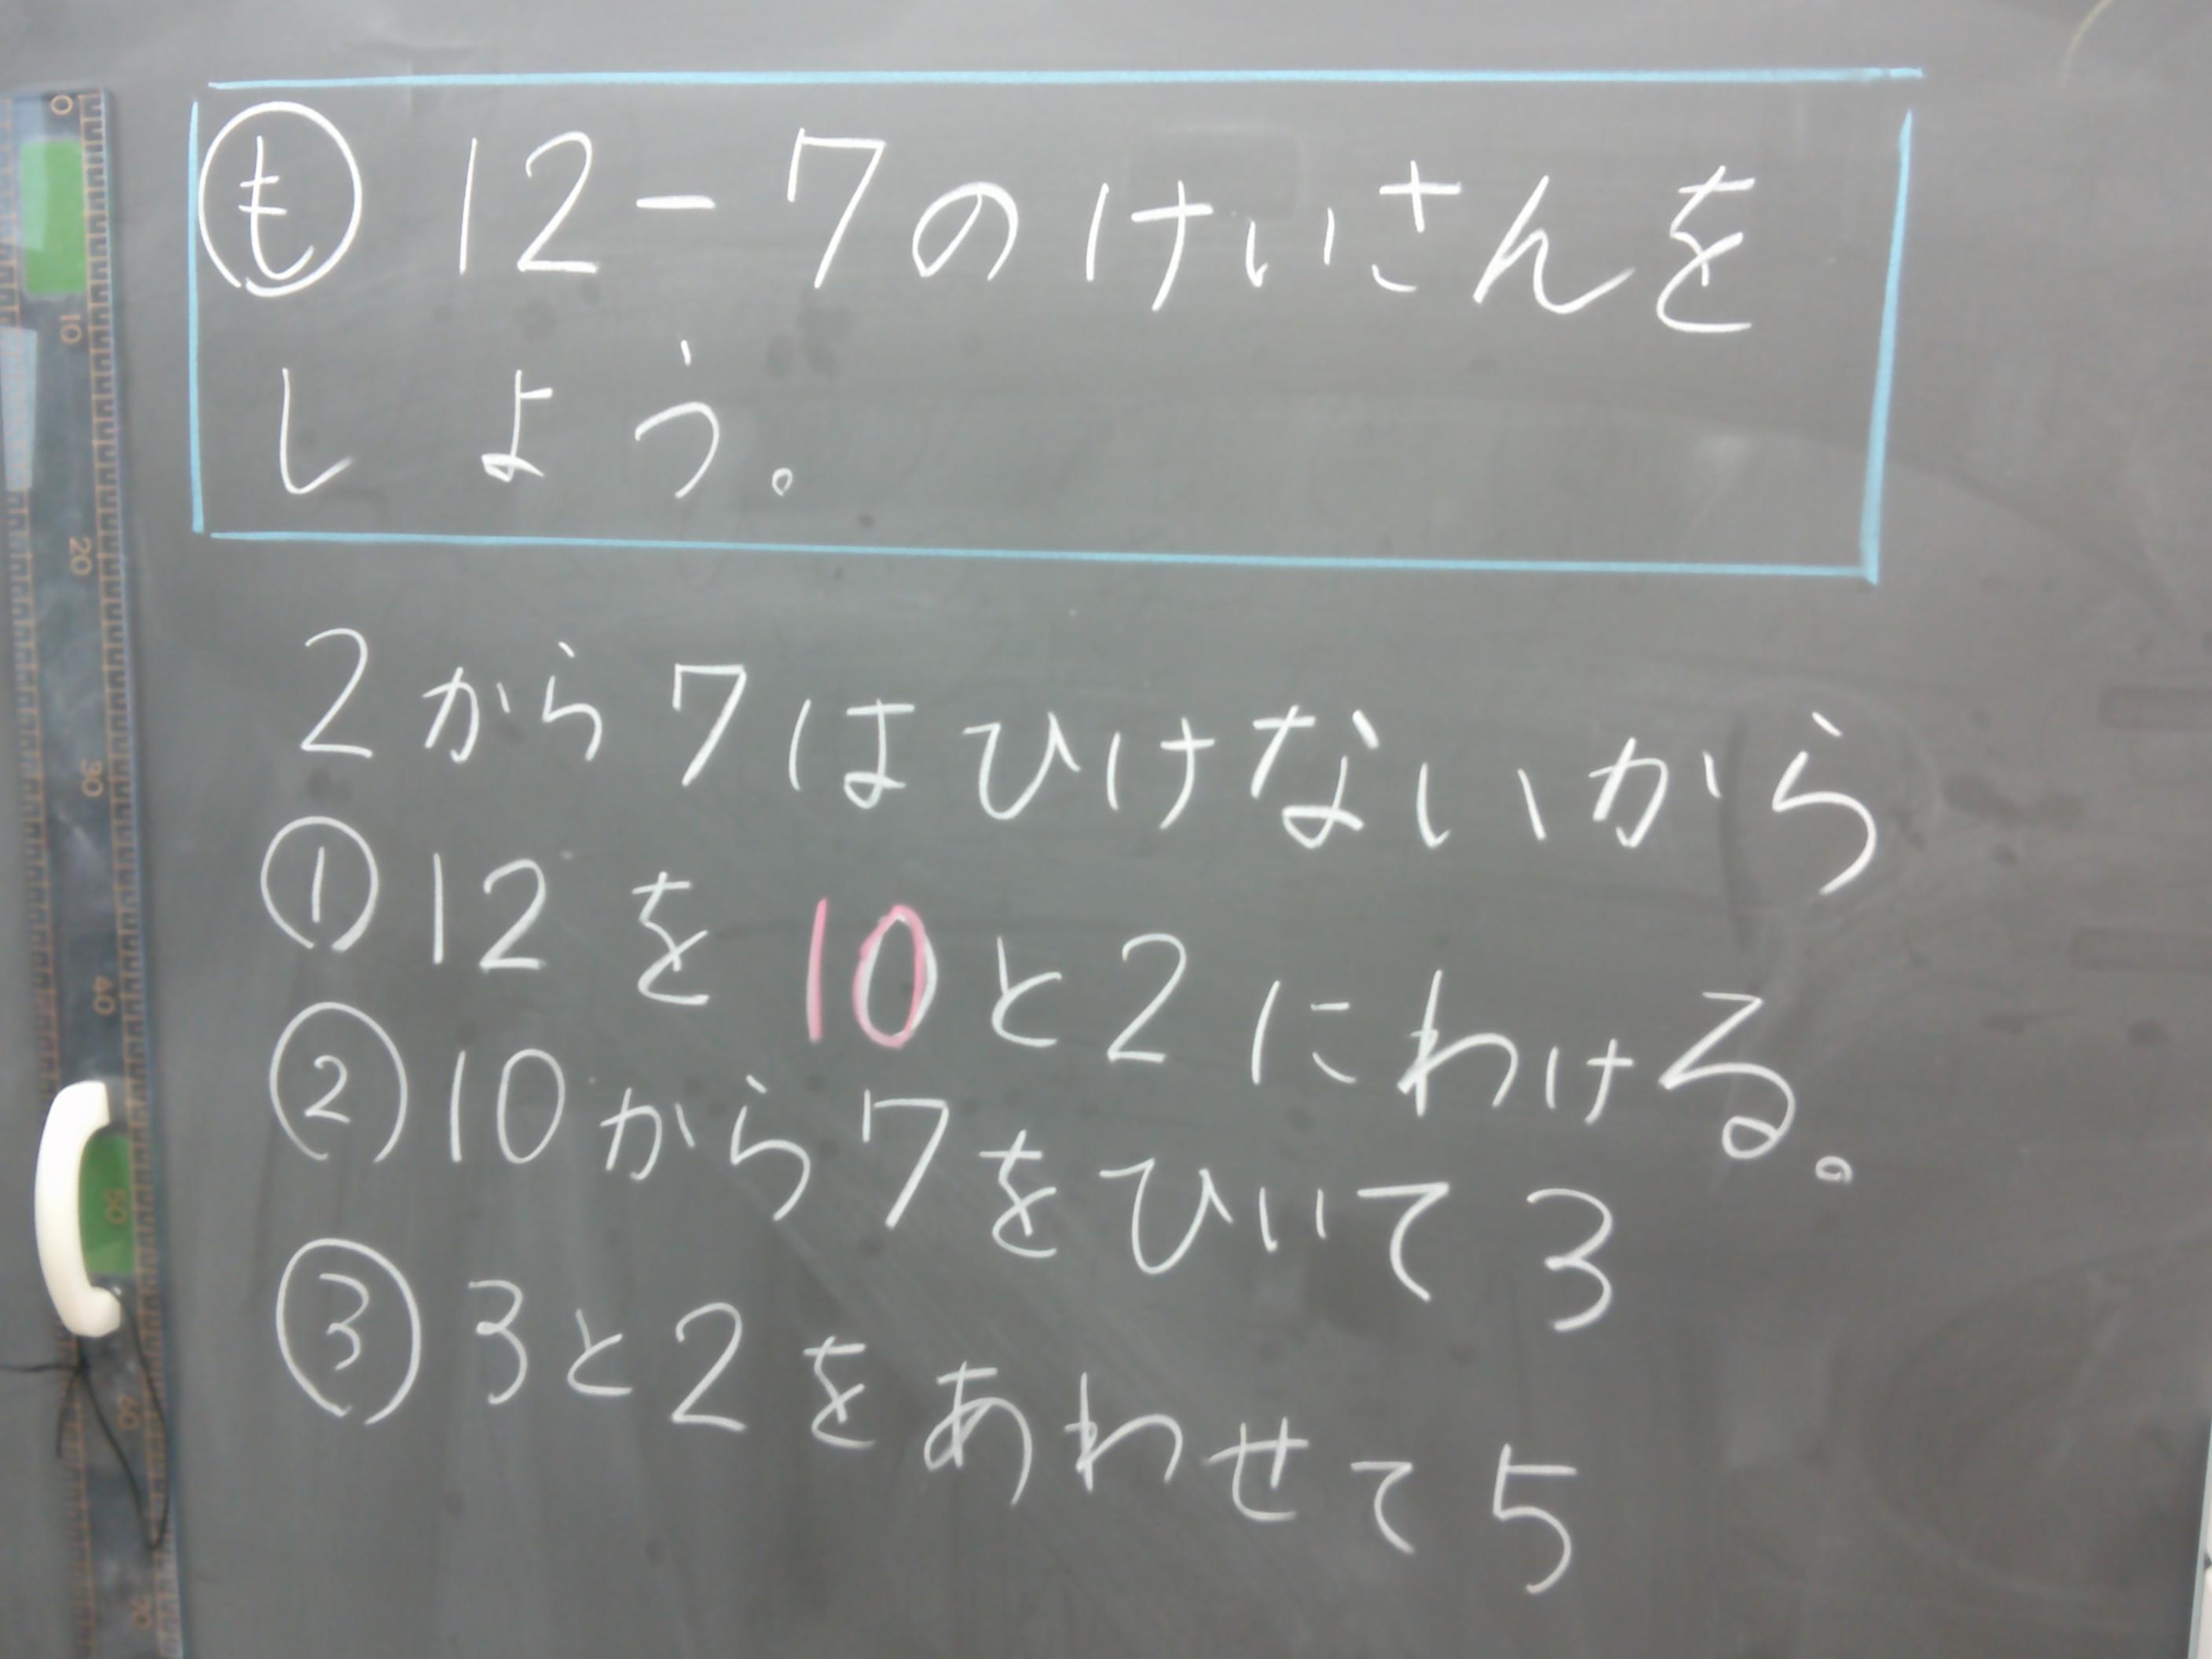 も 12-7のけいさんを
しよう。
2から7はひけないから
① 12を10と2にわける。
② 10から7をひいて3
③ 3と2をあわせて5
0
10
20
30
40
50
60
70